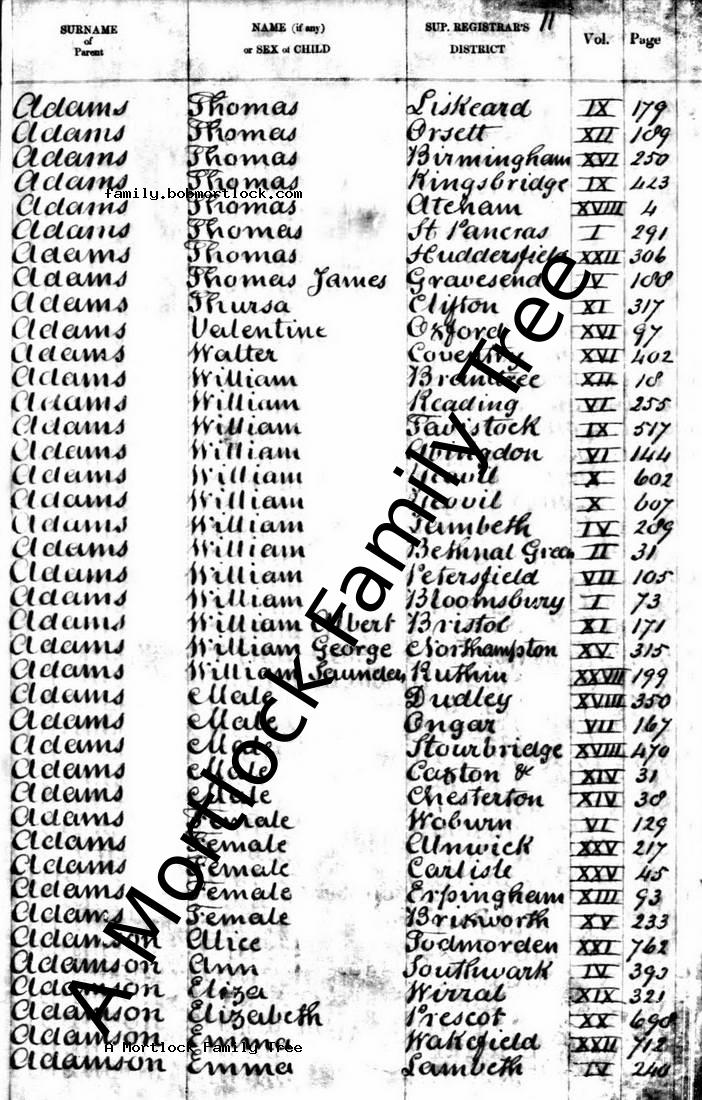 SURNAME of Parent NAME (if any) or SEX of CHILD SUP. REGISTRAR'S DISTRICT Vol. Page
11
Adams Thomas Liskeard IX 179
Adams Thomas Orsett XII 189
Adams Thomas Birmingham XVI 250
Adams Thomas Kingsbridge IX 423
family.bobmortlock.com
Adams Thomas Atcham XVIII 4
Adams Thomas St Pancras I 291
Adams Thomas Huddersfield XXII 306
Adams Thomas James Gravesend IV 188
Adams Thursa Clifton XI 317
Adams Valentine Oxford XVI 97
Adams Walter Coventry XVI 402
Adams William Braintree XII 18
Adams William Reading VI 255
Adams William Tavistock IX 517
Adams William Abingdon VI 144
Adams William Yeovil X 602
Adams William Yeovil X 607
Adams William Lambeth IV 289
Adams William Bethnal Green II 31
Adams William Petersfield VII 105
Adams William Bloomsbury I 73
Adams William Albert Bristol XI 171
Adams William George Northampton XV 315
Adams William Saunders Ruthin XXVII 199
Adams Male Dudley XVIII 350
Adams Male Ongar VII 167
Adams Male Stourbridge XVIII 470
Adams Male Caxton & XIV 31
Adams Male Chesterton XIV 38
Adams Female Woburn VI 129
Adams Female Alnwick XXV 217
Adams Female Carlisle XXV 45
Adams Female Erpingham XIII 93
Adams Female Brixworth XV 233
Adamson Alice Todmorden XXI 762
Adamson Ann Southwark IV 393
Adamson Eliza Wirral XIX 321
Adamson Elizabeth Prescot XX 698
Adamson Emma Wakefield XXII 712
A Mortlock Family Tree
Adamson Emma Lambeth IV 240
A Mortlock Family Tree